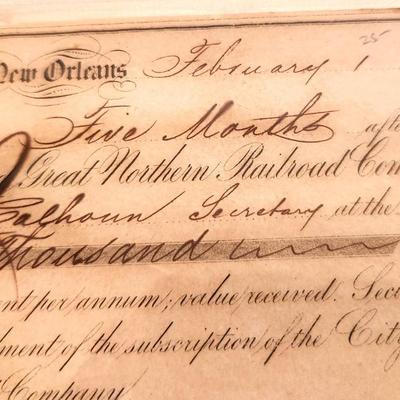 25
New Orleans February 1
Five Months after
Great Northern Railroad Com
Calhoun Secretary at the
Thousand
ent per annum; value received. Secu
dment of the subscription of the City
Company